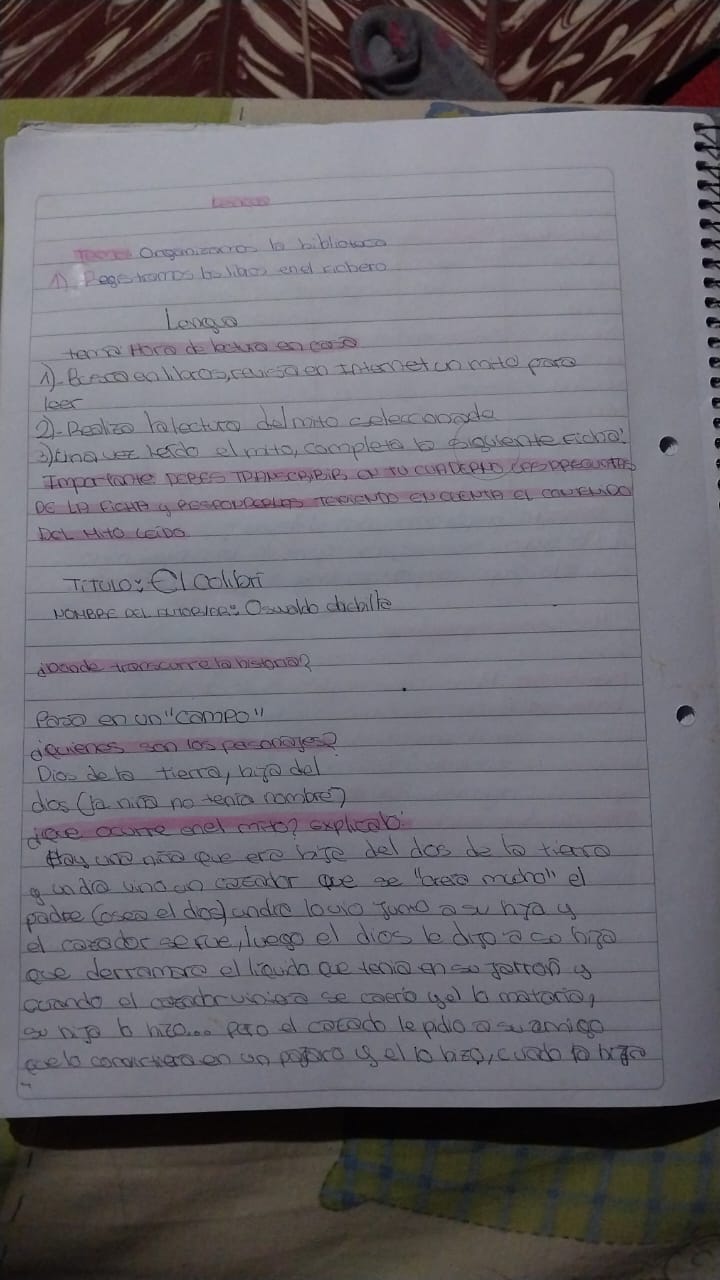 Lengua
Tema: Organizamos la biblioteca
1) Registramos los libros en el fichero
Lengua
tema Hora de lectura en casa
1)-Busco en libros, reviso en Internet un mito para
leer
2)-Realizo la lectura del mito seleccionado
3) Una vez leído el mito, completa la siguiente ficha:
Importante DEBES TRANSCRIBIR en TU CUADERNO LAS PREGUNTAS
DE LA FICHA y RESPONDERLAS TENIENDO EN CUENTA EL CONTENIDO
DEL MITO LEÍDO
TíTULO: El Colibrí
NOMBRE DEL AUTOR/RA: Osvaldo
¿Donde transcurre la historia?
Pasa en un "CAMPO"
¿Quienes son los personajes?
Dios de la tierra, hija del
dios (la niña no tenía nombre)
¿Que ocurre en el mito? explicalo:
Hay una niña que era hija del dios de la tierra
y un día vino un cazador que se "creia mucho" el
padre (osea el dios) un dia lo vio junto a su hija y
el cazador se fue, luego el dios le dijo a su hija
que derramara el liquido que tenia en su jarron y
cuando el cazador viniera se caería y el lo mataria,
su hija lo hizo... pero el cazado le pidio a su amigo
que lo convirtiera en un pajaro y el lo hizo, cuado la hija